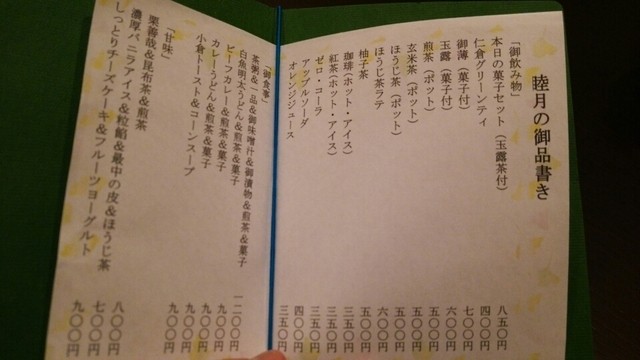 睦月の御品書き
「御飲み物」
本日の菓子セット（玉露茶付） 八五〇円
仁倉グリーンティ 四〇〇円
御薄（菓子付） 七〇〇円
玉露（菓子付） 六〇〇円
煎茶（ポット） 五〇〇円
玄米茶（ポット） 五〇〇円
ほうじ茶（ポット） 五〇〇円
ほうじ茶ラテ 六〇〇円
柚子茶 五〇〇円
珈琲（ホット・アイス） 三五〇円
紅茶（ホット・アイス） 三五〇円
ゼロ・コーラ 三五〇円
アップルソーダ 四〇〇円
オレンジジュース 三五〇円
「御食事」
茶粥＆一品＆御味噌汁＆御漬物＆煎茶＆菓子 一二〇〇円
白魚明太うどん＆煎茶＆菓子 九〇〇円
ビーフカレー＆煎茶＆菓子 九〇〇円
カレーうどん＆煎茶＆菓子 九〇〇円
小倉トースト＆コーンスープ 九〇〇円
「甘味」
栗善哉＆昆布茶＆煎茶 八〇〇円
濃厚バニラアイス＆粒餡＆最中の皮＆ほうじ茶 七〇〇円
しっとりチーズケーキ＆フルーツヨーグルト 九〇〇円